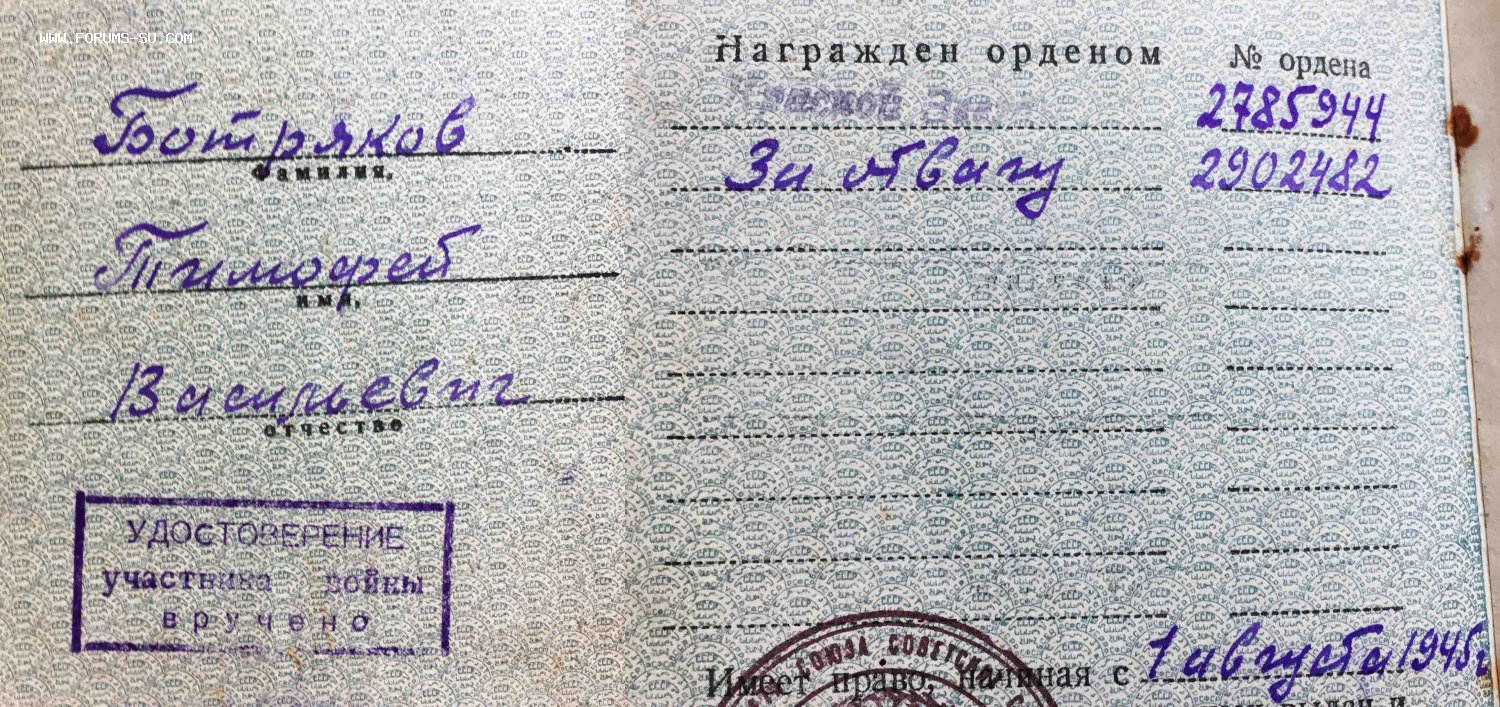 WWW.FORUMS-SU.COM
Ботряков
фамилия,
Тимофей
имя,
Васильевич
отчество
УДОСТОВЕРЕНИЕ
участника войны
вручено
Награжден орденом № ордена
2785944
За отвагу 2902482
СОЮЗА СОВЕТСК
Имеет право, начиная с 1 августа 1945г